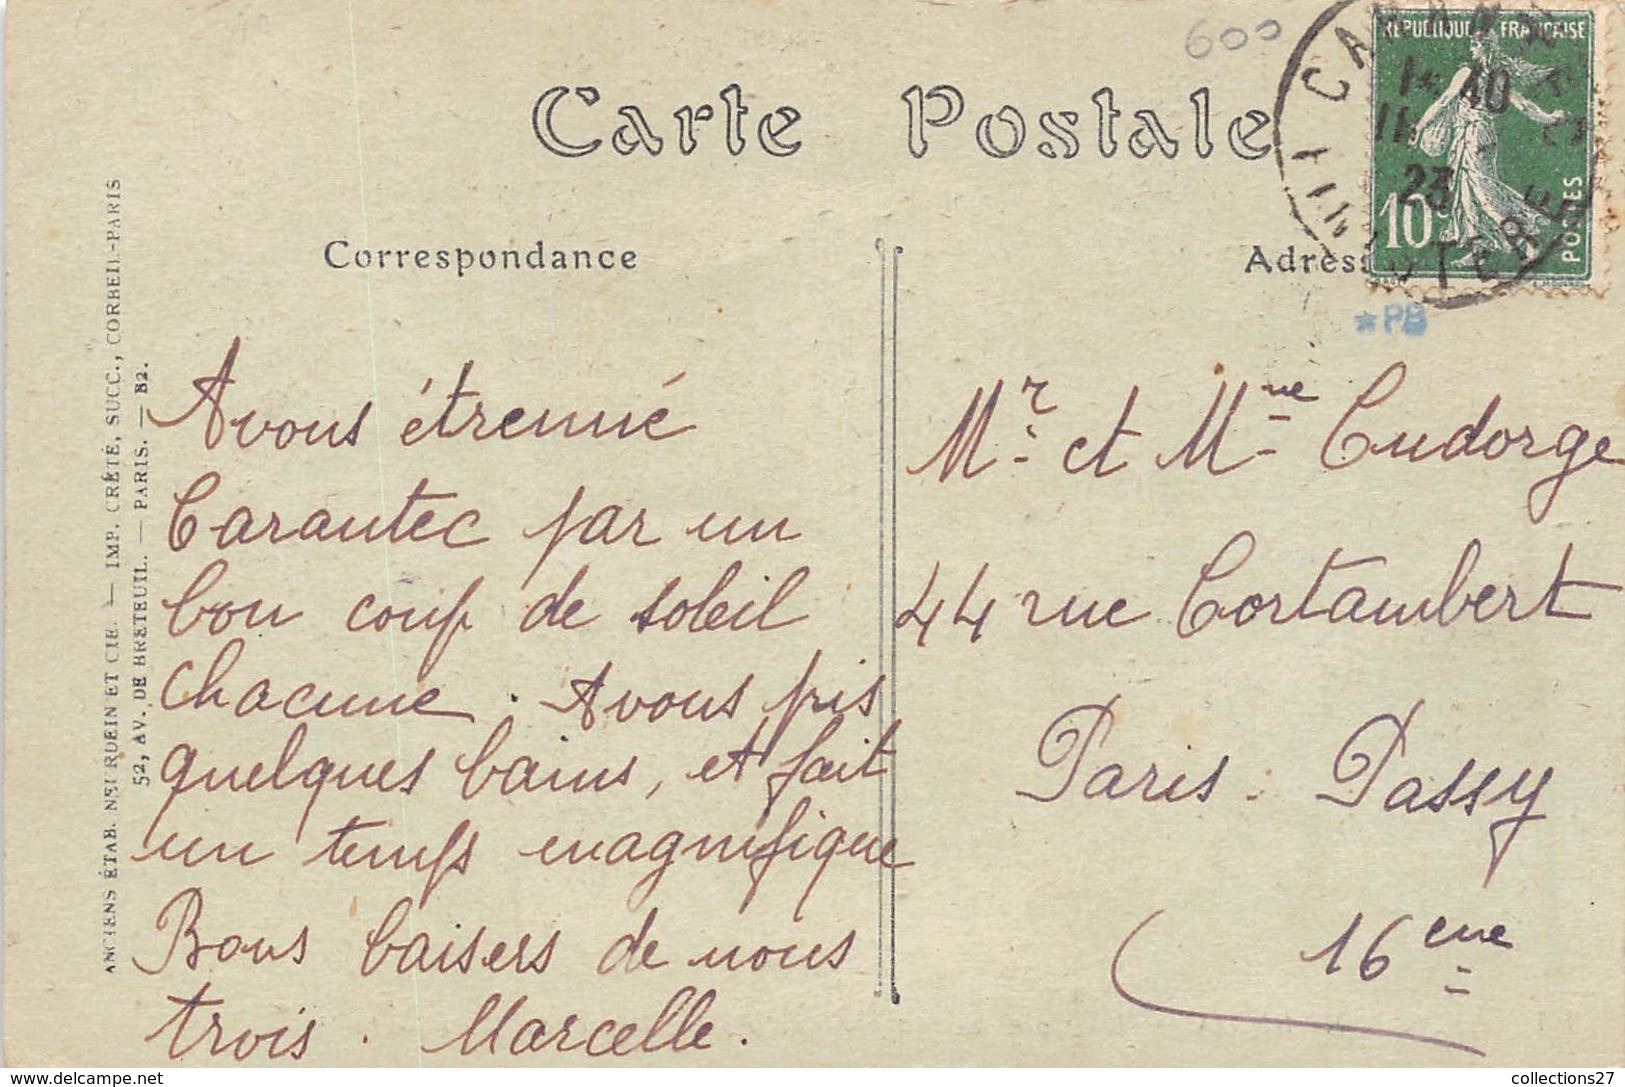 600
Carte Postale
RÉPUBLIQUE FRANÇAISE
10c
POSTES
11
23
Correspondance
Adress
*PB
ANCIENS ÉTAB. NEURDEIN ET CIE. — IMP. CRÉTÉ, SUCC., CORBEIL-PARIS
52, AV. DE BRETEUIL. — PARIS. — B2.
Avous étrenné
Carantec par un
bon coup de soleil
chacune. Avous pris
quelques bains, et fait
un temps magnifique
Bons baisers de nous
trois. Marcelle.
Mr. et Mme Cudorge
44 rue Cortambert
Paris. Passy
16eme
collections27